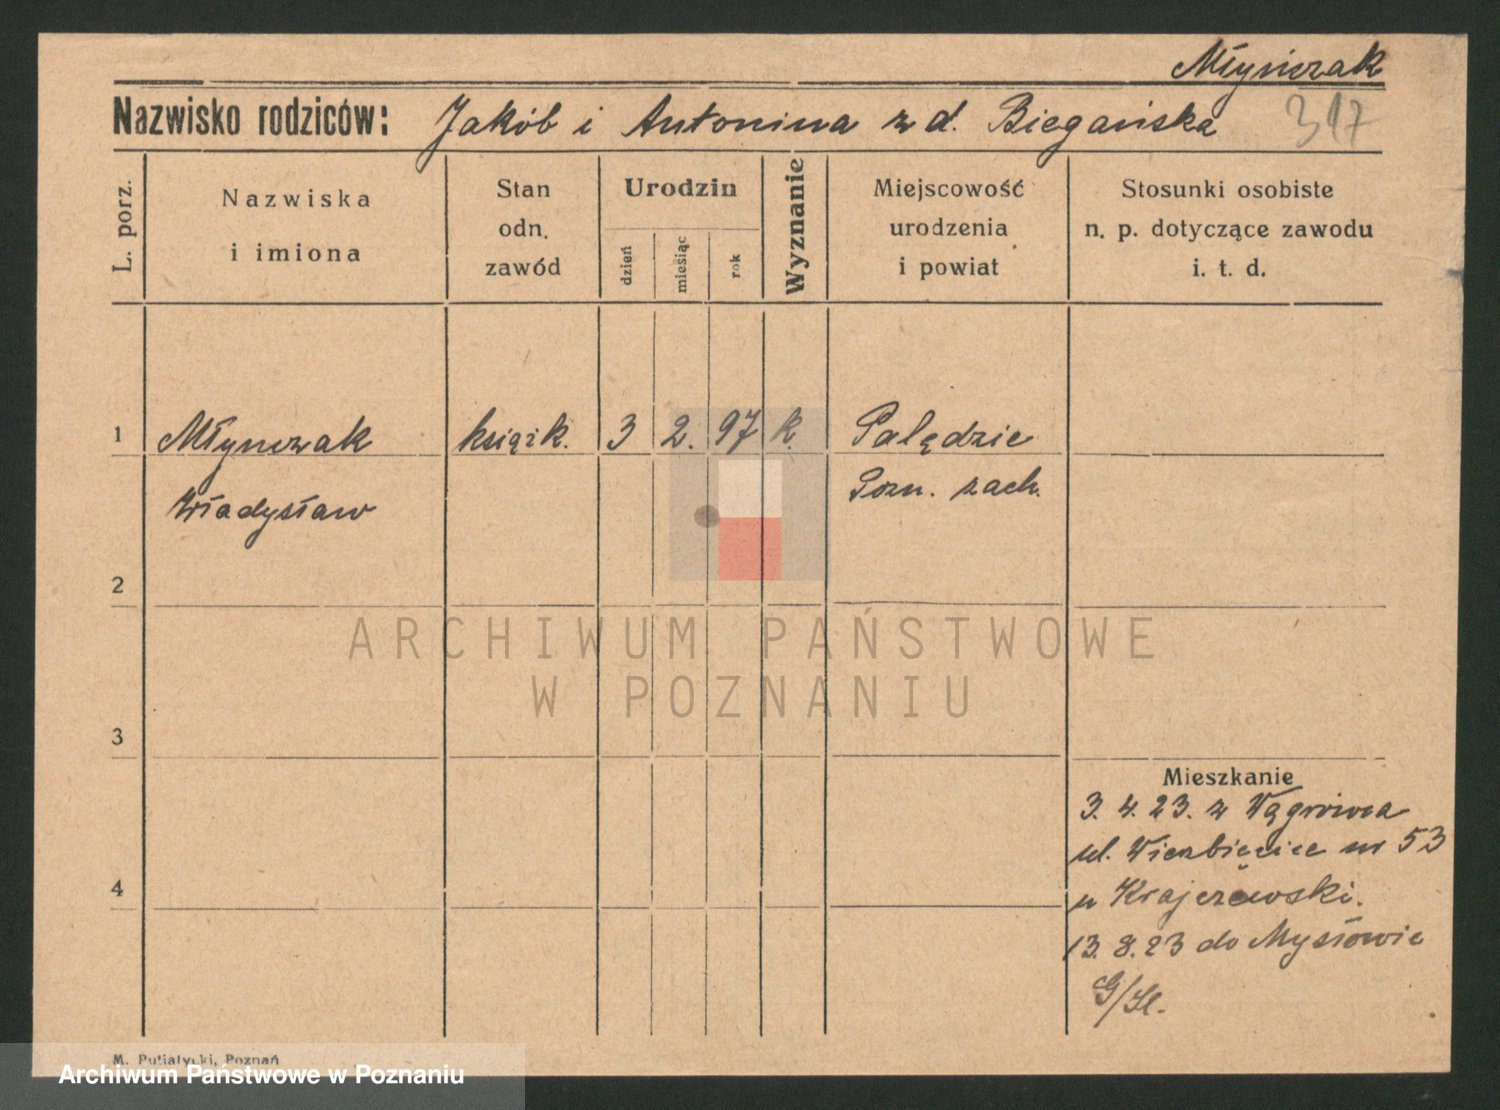 Młynczak
Nazwisko rodziców: Jakób i Antonina z d. Biegańska 317
L. porz.
Nazwiska
i imiona
Stan
odn.
zawód
Urodzin
dzień
miesiąc
rok
Wyznanie
Miejscowość
urodzenia
i powiat
Stosunki osobiste
n. p. dotyczące zawodu
i. t. d.
1 Młynczak książk. 3 2. 97 k. Palędzie
Władysław Pozn. zach.
2
ARCHIWUM PAŃSTWOWE
W POZNANIU
3
Mieszkanie
3. 4. 23. z Wągrówca
ul. Wierzbięcice nr 53
4
u Krajczewski.
13. 8. 23 do Mysłowic
M. Putiatycki, Poznań
Archiwum Państwowe w Poznaniu